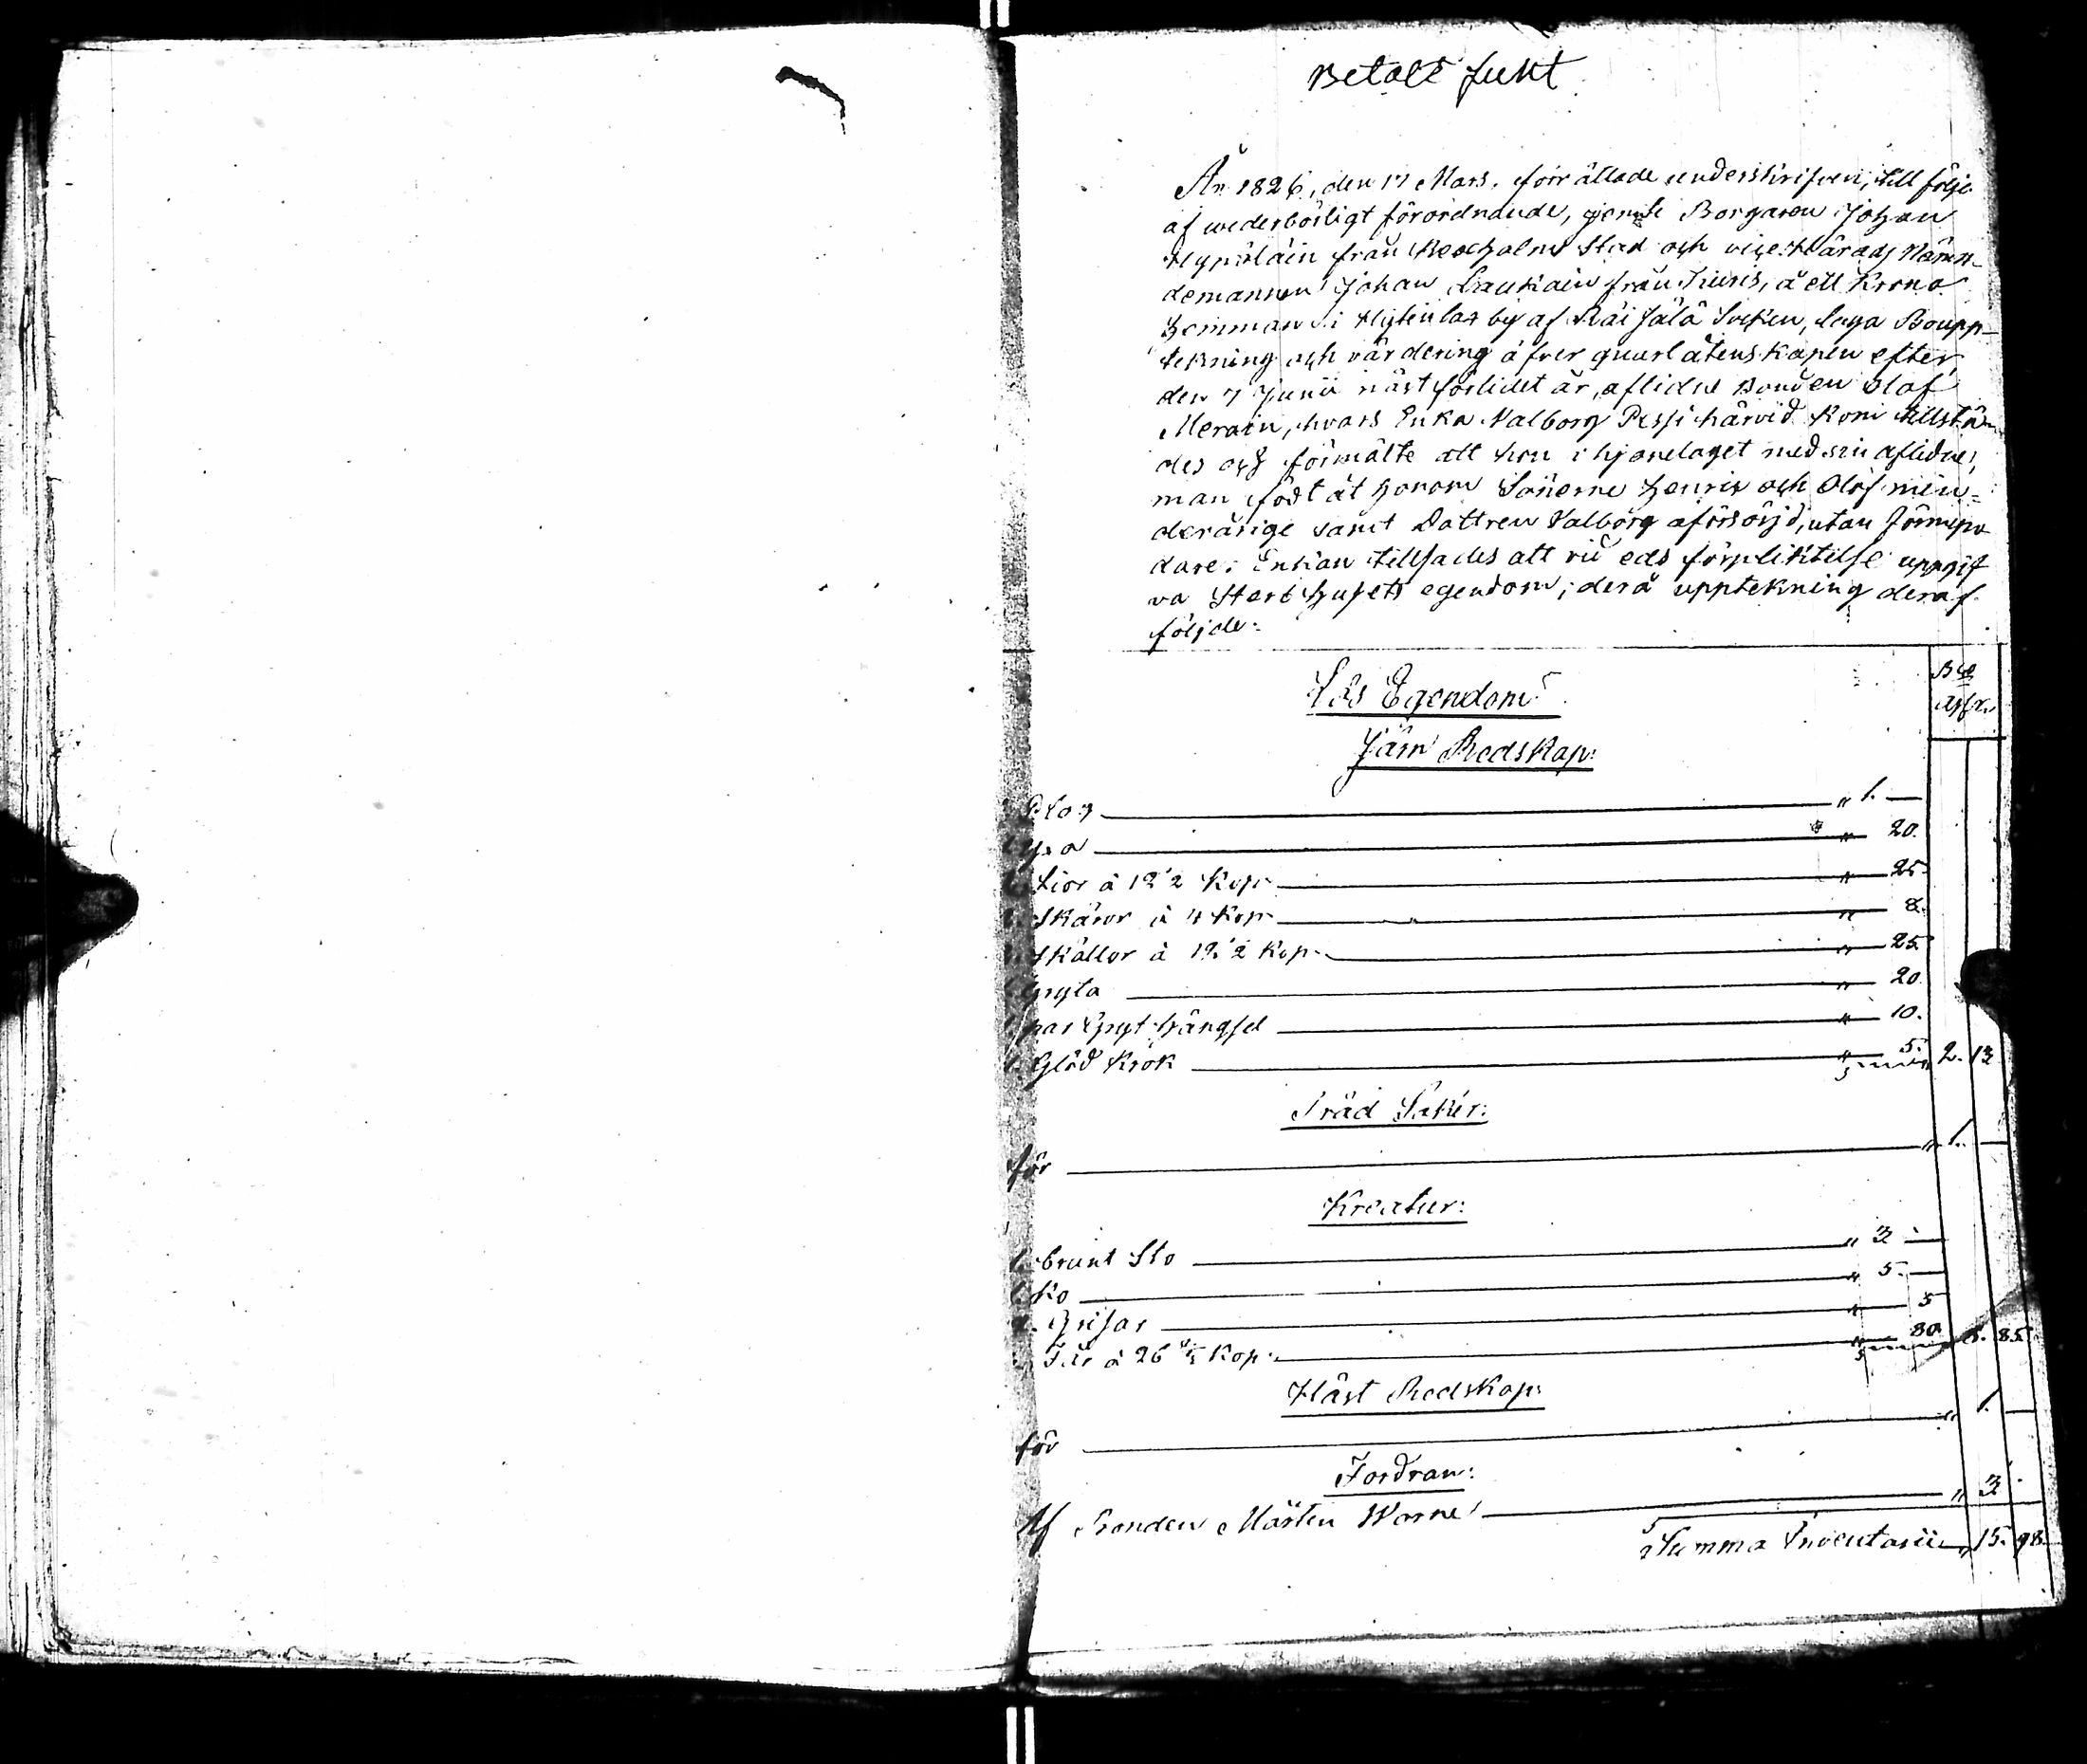 Betalt
År 1826, den 17 Mars. förrättade underskrifven, till följe
af wederbörligt förordnande, jemte Borgaren Johan
från Kexholms Stad och vice Härads Näm-
demannen Johan Laukain från Tiuris, å ett Krono
hemman i by af Räisälä Socken, laga Boupp-
tekning och värdering öfver quarlåtenskapen efter
den 7 Junii näst förlidet år, aflidne Bonden Olof
Merain, hvars Enka Valborg Pessi härvid kom tillstä-
des och förmälte att hon i hjonelaget med sin aflidne
man födt åt honom Sönerne Henrik och Olof min-
derårige samt Dottren Valborg oförsörjd, utan förmyn
dare. Enkan tillsades att vid eds förpliktelse uppgif
va Sterbhusets egendom; derå upptekning deraf
följde:
Lös Egendom
Järn Redskap:
Plog " 1. —
1. Yxa " 20.
Lior à 12½ Kop " 25.
Skäror à 4 Kop " 8.
Skällor à 12½ Kop " 25.
1. Gryta " 20.
1. par Gryt hängsel " 10.
1. Glöd Krok " 5. 2. 13
Träd Saker:
för " 1. —
Kreatur:
1. brunt Sto " 3 —
1. Ko " 5. —
2. Grisar " 5
Får à 26 ⅔ Kop " 80. 8. 85.
Häst Redskap:
för " 1. —
Fordran:
Af Bonden Mårten Warne " 3 .
Summa Inventarii " 15. 98.